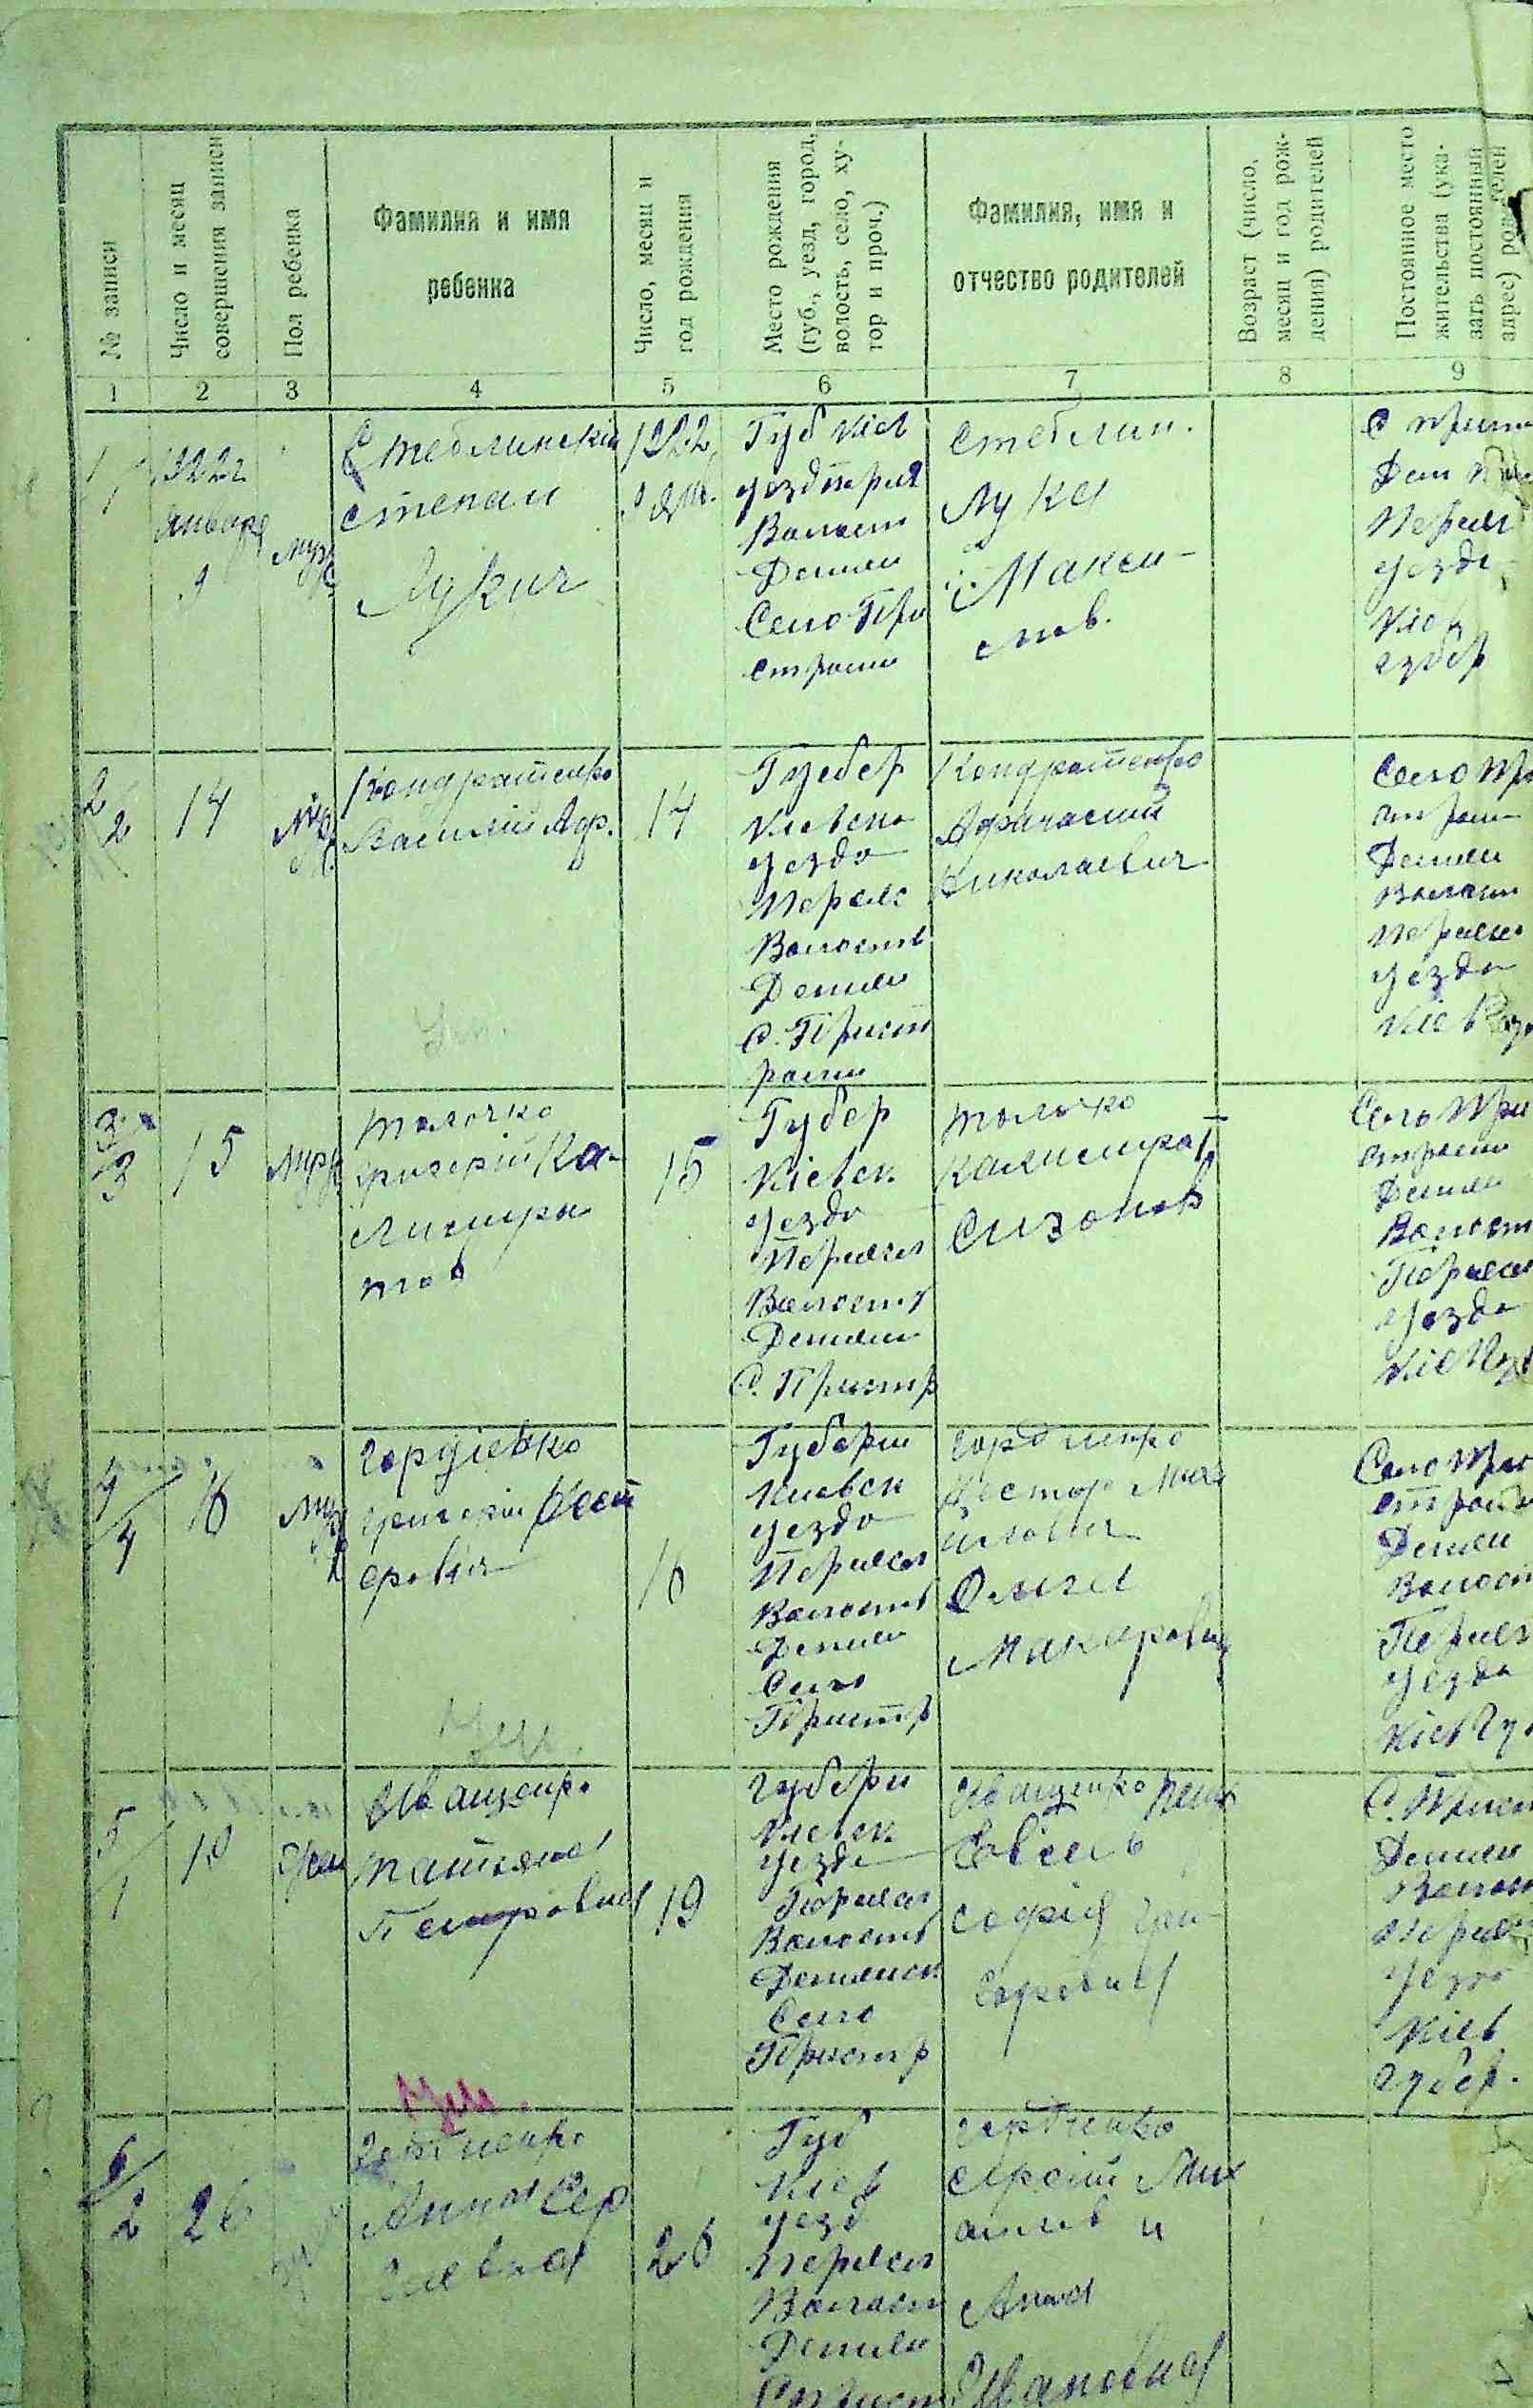 № записи
Число и месяц
совершения записи
Пол ребенка
Фамилия и имя
ребенка
Число, месяц и
год рождения
Место рождения
(губ., уезд, город,
волость, село, ху-
тор и проч.)
Фамилия, имя и
отчество родителей
Возраст (число,
месяц и год рож-
дения) родителей
Постоянное место
жительства (ука-
зать постоянный
адрес) родителей
1
2
3
4
5
6
7
8
9
1
1922г
января
9
муж
Стеблинскій
Степан
Лукич
1922
9 янв.
Губ Кіев
уезд
Волост
Демян
Село При
строми
Стеблин.
Лука
Макси-
мов.
Перея
уезда
Кіев
губер
2
2
14
Муж
Кондратенко
Василий Аф.
14
Губер
Кіевска
уезда
Переяс
Волость
Демян
С. Прист
роми
Кондратенко
Афанасий
Николаевич
Село При
Демян
Волост
Переяс
уезда
3
3
15
Муж
Толочко
григорій Ка-
листра
тов
15
Губер
Кіевск
уезда
Переясл
Волость
Демян
С. Пристр
Толочко
Калистрат
Сизонов
Село При
строми
Демян
Волост
Переяс
уезда
4
4
16
Муж
Гордіевко
григорій Нест
ерович
16
Губерн
Киевск
уезда
Переясл
Волость
Демян
Село
Пристр
Гордиенко
Нестор Миха
йлович
Олга
Макаровна
Село При
строми
Демян
Волост
Переяс
уезда
Кіев Гу
5
1
19
жен
Иващенко
Татьяна
Петровна
19
Губерн
Кіевск
уезда
Переясл
Волость
Демянск
Село
Пристр
Иващенко
софия Гри-
горьевна
С. Прист
Демян
Волост
Переяс
уезда
Кіев
губер.
6
2
26
Анна Сер
геевна
26
Губ
Кіев
уезд
Переясл
Волост
Демян
Гордіенко
Сергій Мих
аилов и
Анна
Ивановна